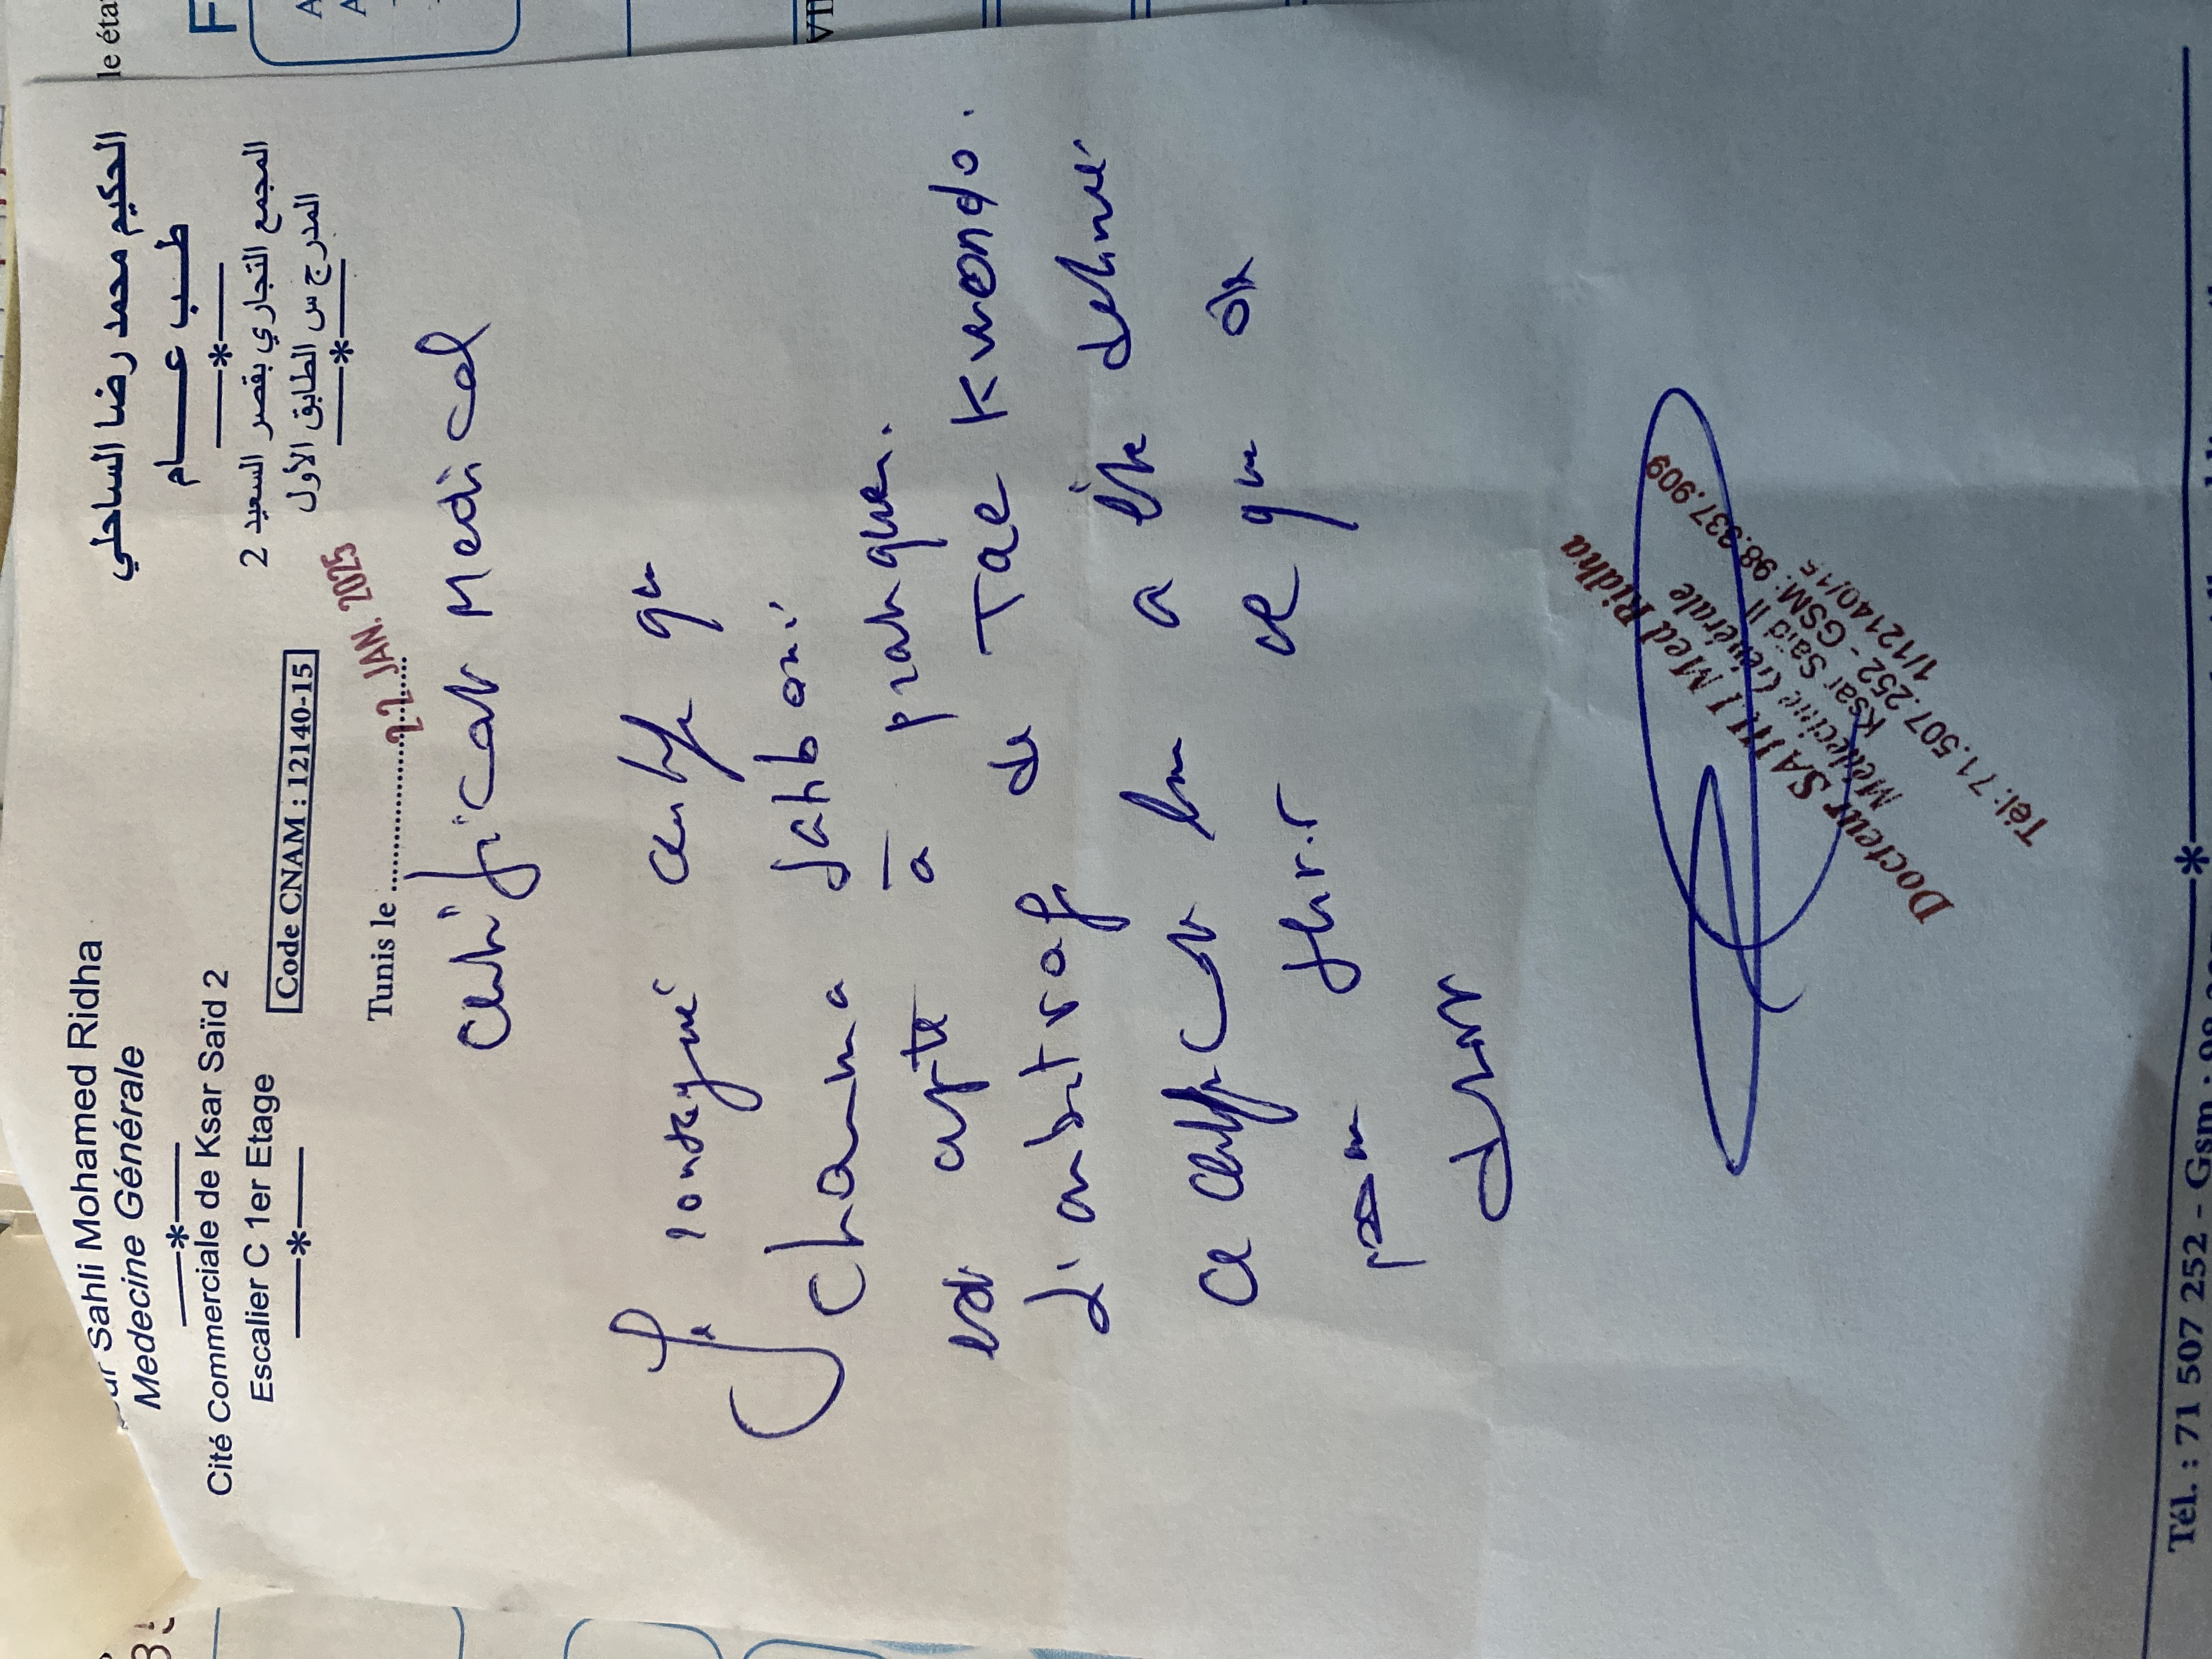 Sahli Mohamed Ridha
Medecine Générale
—*—
Cité Commerciale de Ksar Saïd 2
Escalier C 1er Etage
—*—
الحكيم محمد رضا الساحلي
طب عام
—*—
المجمع التجاري بقصر السعيد 2
المدرج س الطابق الأول
—*—
Code CNAM : 12140-15
Tunis le 22 JAN. 2025
Certificat Medical
Je soussigné certifie que
Chaima Sahboni
est apte à pratiquer
L'arbitrage de Tae Kwondo.
ce certificat lui a été délivré
pour servir ce que de
droit
Docteur SAHLI Med Ridha
Médecine Générale
Ksar Saïd II
Tél: 71.507.252 - GSM: 98.337.909
1/12140/15
—*—
Tél. : 71 507 252 - Gsm :
le éta